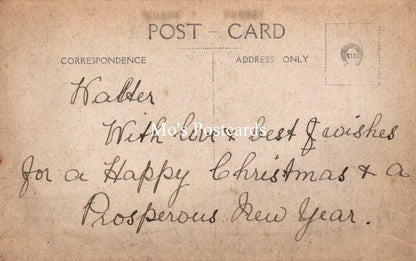 POST - CARD
CORRESPONDENCE
ADDRESS ONLY
Walter
Mo's Postcards
With love & best wishes
for a Happy Christmas & a
Prosperous New Year.